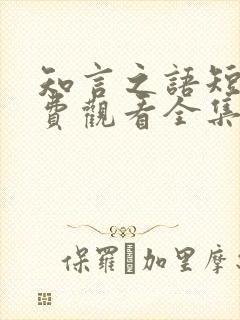 知言之語短
費觀看全集
保羅·加里摩